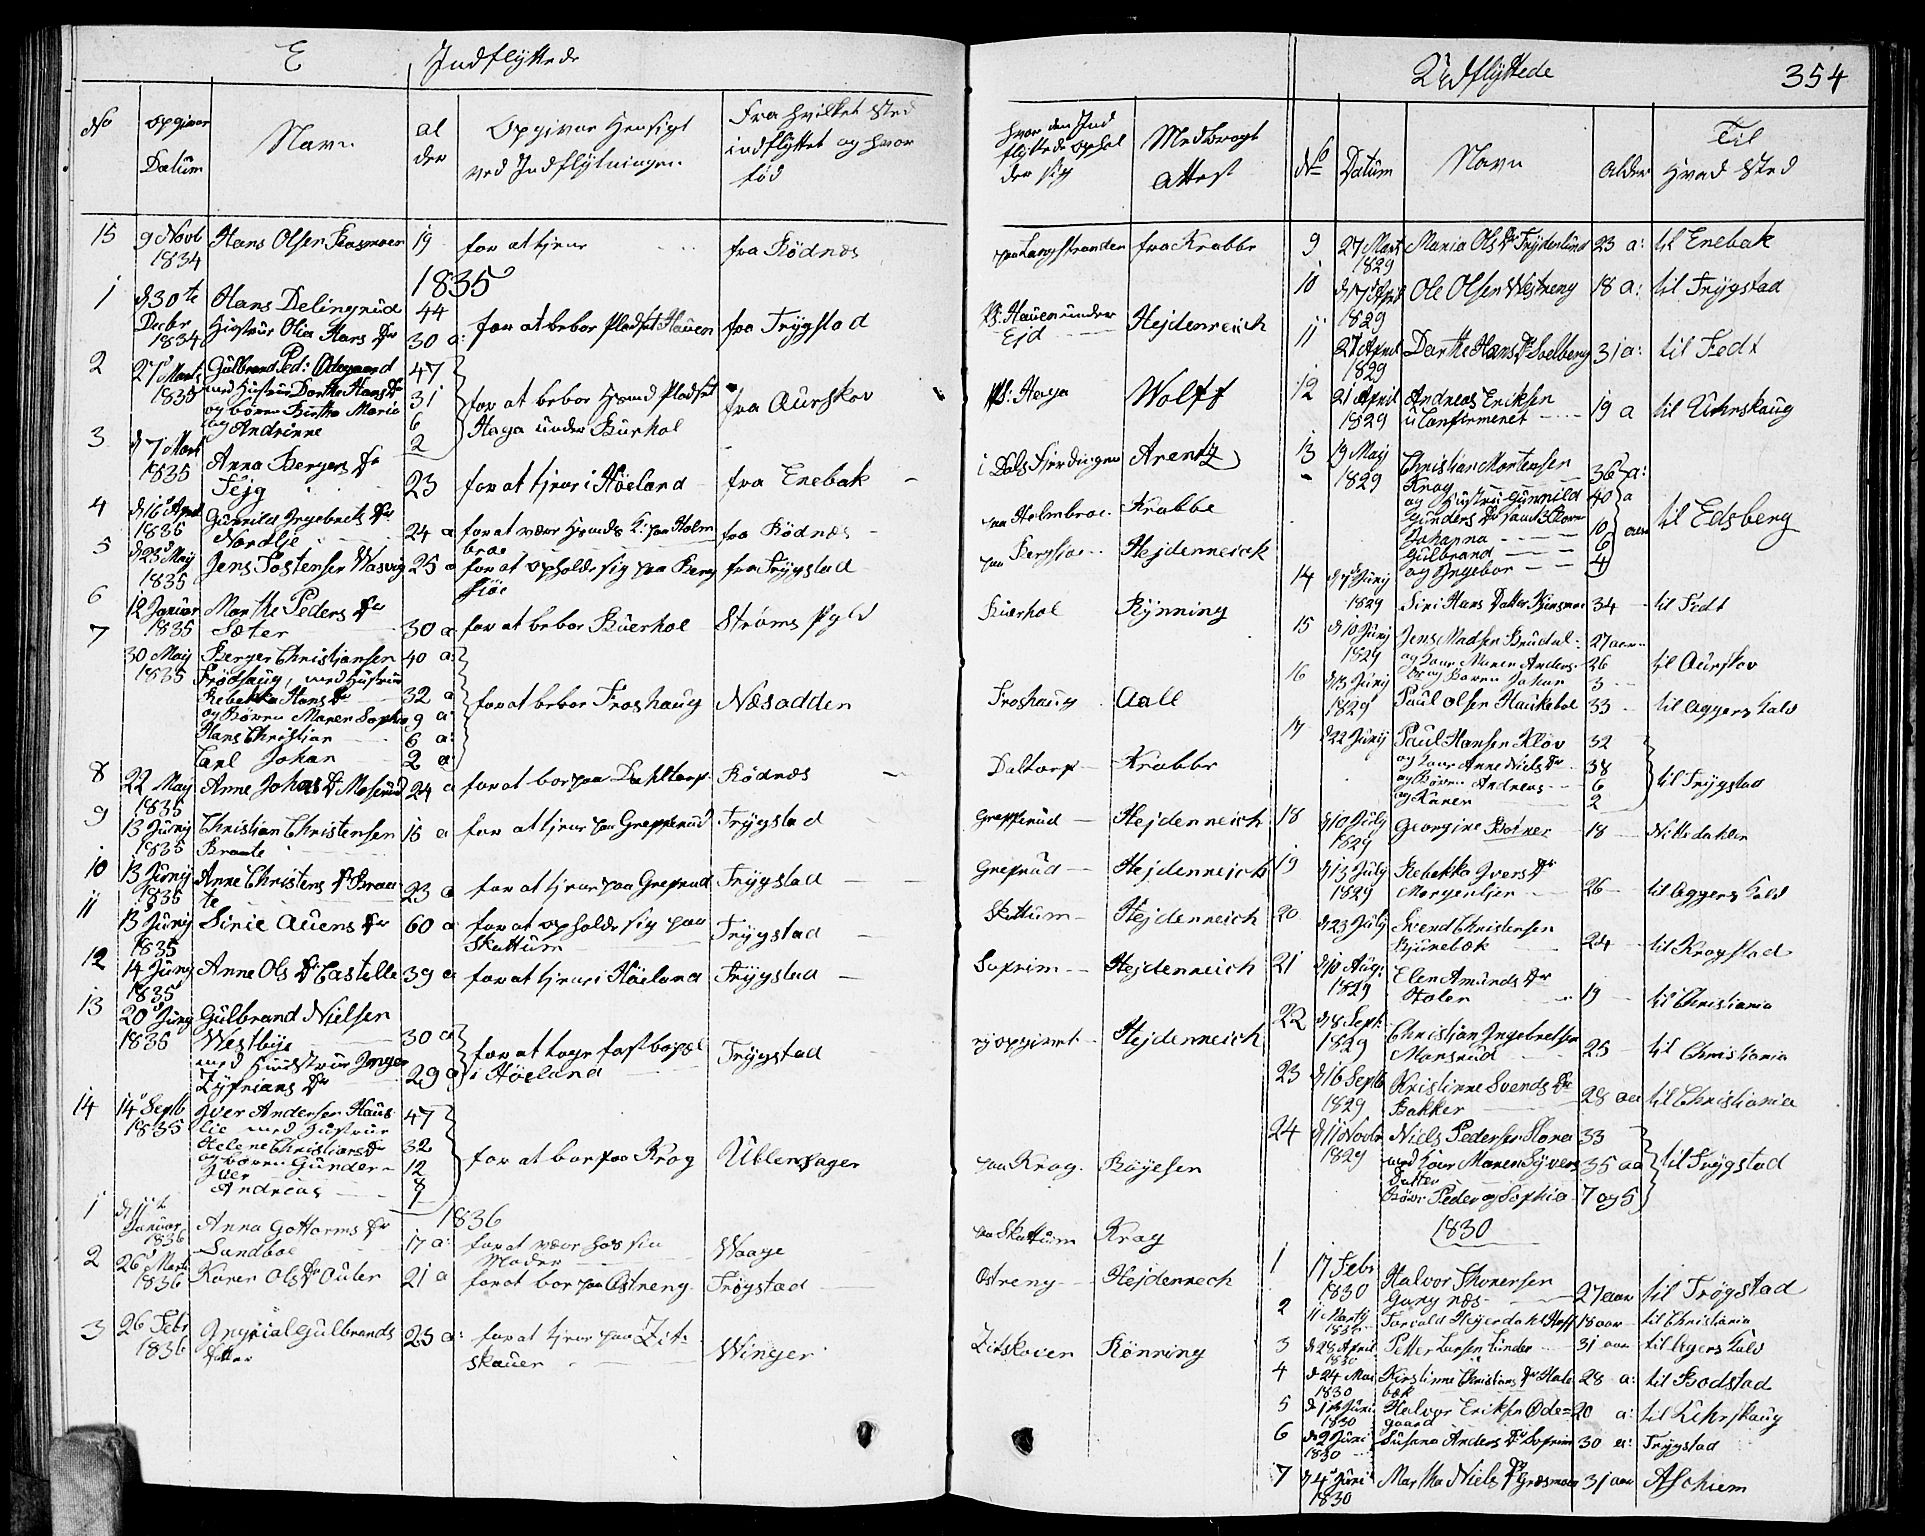 E Indflyttede
No
opgiven Datum
Navn
al der
Opgiven Hensigt ved Indflytningen
Fra hvilket Sted indflyttet og hvor fød
hvor den Ind flyttede ophol der sig
Medbragt Attest
15 9 Novb 1834 Hans Olsen 19 for at tjene fra Rødnæs paa Langstranden fra Krabbe
1835
1 d 30te Decbr 1834 Hans Delingrud 44
Hustrue Olia Hans Dr 30 a: for at beboe Pladset Hauen fra Trygstad Pl: Hauen under Ejd Hejdenreich
2 27 Marts 1835 Gulbrand Ped: Odegaard 47
med Hustrue Dorthe Hans Dr 31
og børn Birthe Maria 6
og Andrinne 2
for at beboe Husmd Pladset Haga under Burhol fra Aurskov Pl: Haga Wolff
3 d 7 Mart 1835 Anna Bergers Dr Fejg 23 for at tjene i Høeland fra Enebak i Dals Fjerdingen Arentz
4 d 16 April 1835 Gunnild Ingebrets Dr Nordlie 24 a for at være Husmds K. paa Holm broe fra Rødnæs paa Holmbroe Krabbe
5 d 25 Maj 1835 Jens Tostensen Wasvig 25 a for at opholde sig paa Berg siøe fra Trygstad paa Bergsiøe Hejdenreich
6 12 Januar 1835 Marthe Peders Dr Sæter 30 a for at beboe Buerhol Strøms Pgld Buerhol Rynning
7 30 Maj 1835 Berger Christiansen 40 a:
Frøshaug, med Hustrue
Rebekka Hans Dr 32 a
og Børn Maren Sophia 9 a:
Hans Christian 6 a:
Carl Johan 2 a:
for at beboe Froshaug Næsodden Froshaug Aall
8 22 May 1835 Anne Johans Dr Moserud 24 a for at boe paa Dahltorp Rødnæs Daltorp Krabbe
9 13 Junij 1835 Christian Christensen Braate 15 a for at tjene paa Grepperud Trygstad Grepperud Hejdenreich
10 13 Junij 1835 Anne Christens Dr Braa te 23 a for at tjene paa Greprud Trygstad Greprud Hejdenreich
11 13 Junij 1835 Sirie Auens Dr 60 a for at opholde sig paa Skattum Trygstad Skattum Hejdenreich
12 14 Junij 1835 Anne Ols Dr Castelle 39 a for at tjene i Høeland Trygstad Soprim Hejdenreich
13 20 Junij 1835 Gulbrand Nielsen
Westbye 30 a
med Hustrue Inger
Zyprians Dr 29 a
for at tage fast bopæl i Høeland Trygstad ej opgivet Hejdenreich
14 14 Septb 1835 Iver Andersen Haus 47
lie med Hustrue
Helene Christians Dr 32
og børn Gunder 12
Iver 8
Andreas 1
for at boe paa Krog Ullensager paa Krog Böyesen
1836
1 d 11te Januar 1836 Anna Gottorms Dr Sundboe 17 a: for at være hos sin Moder Waage paa Skattum Krag
2 26 Marti 1836 Karen Ols Dr Outer 21 a for at boe paa Ostreng Trøgstad Ostreng Hejdenrech
3 26 Febr 1836 Gulbrands Datter 23 a: for at tjene paa Zit: skauer Winger Zitskoien Rönning
Udflyttede 354
No Datum Navn Alder Til Hvad Sted
9 27 Mart 1829 Maria Ols Dr 23 a: til Enebak
10 d 17 April 1829 Ole Olsen Westreng 18 a: til Trygstad
11 21 April 1829 Dorthe Hans Dr Soelberg 31 a: til Fedt
12 21 April 1829 Andreas Eriksen uConfirmeret 19 a til Uhrskaug
13 19 Maj 1829 Christian Mortensen
Krog 36 a:
og Hustru Gunnild 40 a
Gunders Dr samt Børn
Johanna 10
Gulbrand 6
og Ingebor 4
aar til Edsberg
14 d 7 Junij 1829 Siri Hans Datter 34 til Fedt
15 d 10 Junij 1829 Jens Madsen Brudal 27 aar
og Kone Maren Anders 26
Dr og Barn Johan 3
til Aurskov
16 d 13 Junij 1829 Paul Olsen Haukeboe 33 til Aggers Sald
17 d 22 Junij Paul Hansen Kløv 32
og Kone Anne Niels Dr 38
og Børn Andreas 6
og Karen 2
til Trygstad
18 d 10 July 1829 Georgine 18 Nittedahlen
19 d 13 July 1829 Rebekka Ivers Dr Morgenlien 26 til Aggers Sald
20 d 23 July Svend Christensen Bjønebæk 24 til Kragstad
21 d 10 Aug: 1829 Elen Amunds Dr Holen 19 til Christiania
22 d 8 Sept: 1829 Christian Ingebretsen Mansrud 25 til Christiania
23 d 16 Septb 1829 Kristinne Svends Dr Bakker 28 aar til Christiania
24 d 11 Novbr 1829 Niels Pedersen 33
med Kone Maren Syvers 35 aar
Datter
Børn Peder og Sophia 7 og 5
til Trygstad
1830
1 17 Febr 1830 Halvor Thoresen 27 aar til Trøgstad
2 11 Martij 1830 Torvald Heyerdahl Hoff 18 aar til Christiania
3 d 28 April 1830 Petter Larsen Lunder 31 aar til Agers Sald
4 d 24 Mai 1830 Kirstinne Christians Dr Hole bæk 28 a: til Bodstad
5 d 1 Juni 1830 Halvor Eriksen Øde= gaard 20 a: til Uhrskaug
6 d 2 Juni 1830 Susana Anders Dr Soprim 30 a: Trygstad
7 d 4 Juni 1830 Martha Niels Dr Græsmoe 31 aar Aschiem